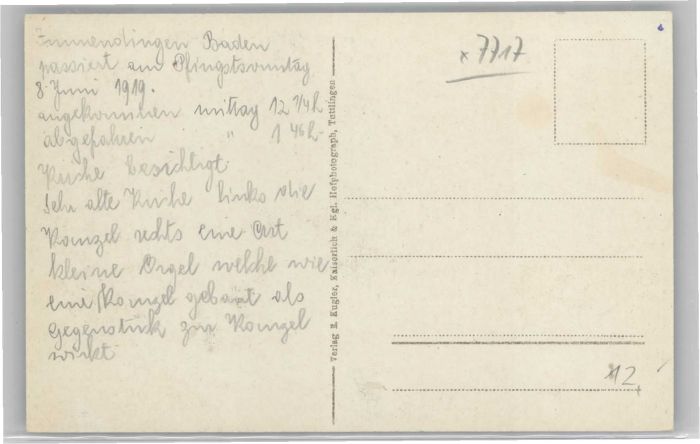 Emmendingen Baden
passiert am Pfingstsonntag
8 Juni 1919.
angekommen mittag 12 1/4 h
abgefahren " 1 46 h
Kirche besichtigt
Sehr alte Kirche links die
Kanzel rechts eine Art
kleine Orgel welche wie
eine Kanzel gebaut als
Gegenstück zur Kanzel
wirkt
Verlag E. Kugler, Kaiserlich & Kgl. Hofphotograph, Tuttlingen
x 7717
12